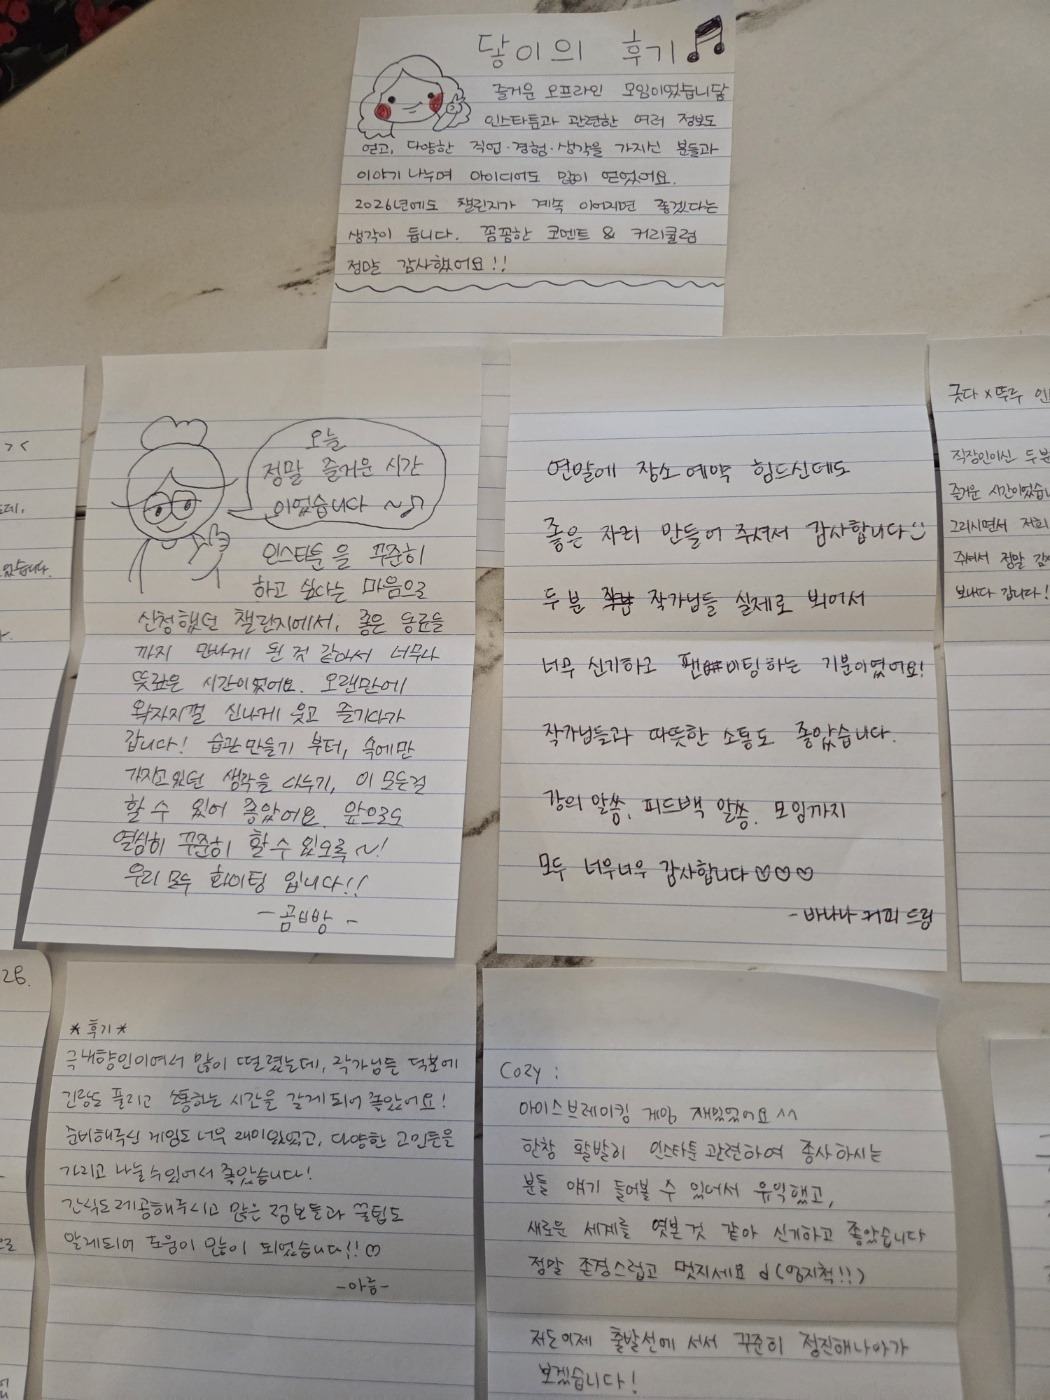 닿이의 후기
즐거운 오프라인 모임이였습니닿
인스타툰과 관련한 여러 정보도
얻고, 다양한 직업·경험·생각을 가지신 분들과
이야기 나누며 아이디어도 많이 얻었어요.
2026년에도 챌린지가 계속 이어지면 좋겠다는
생각이 듭니다. 꼼꼼한 코멘트 & 커리큘럼
정말 감사했어요!!
오늘
정말 즐거운 시간
이었습니다 ~♪
인스타툰을 꾸준히
하고 싶다는 마음으로
신청했던 챌린지에서, 좋은 동료들
까지 만나게 된 것 같아서 너무나
뜻깊은 시간이었어요. 오랜만에
왁자지껄 신나게 웃고 즐기다가
갑니다! 습관만들기 부터, 속에만
가지고있던 생각을 나누기, 이 모든걸
할 수 있어 좋았어요. 앞으로도
열심히 꾸준히 할 수 있도록 ~!
우리 모두 화이팅 입니다!!
- 곰비방 -
연말에 장소 예약 힘드신데도
좋은 자리 만들어 주셔서 감사합니다
두 분 작가님들 실제로 뵈어서
너무 신기하고 팬미팅하는 기분이였어요!
작가님들과 따뜻한 소통도 좋았습니다.
강의 알쏭, 피드백 알쏭, 모임까지
모두 너무너무 감사합니다 ♡♡♡
- 바나나 커피 드림
굿다 x뚜루
직장인이신 두분
즐거운 시간이었습니
그리시면서 저희
주셔서 정말
보내다 갑니다!
* 후기 *
극내향인이여서 많이 떨렸는데, 작가님들 덕분에
긴장도 풀리고 소통하는 시간을 갖게되어 좋았어요!
준비해주신 게임도 너무 재미있었고, 다양한 고민들을
가지고 나눌수있어서 좋았습니다!
간식도 제공해주시고 많은 정보들과 꿀팁도
알게되어 도움이 많이 되었습니다!! ♡
-아름-
Cozy :
아이스브레이킹 게임 재밌었어요 ^^
한창 활발히 인스타툰 관련하여 종사하시는
분들 얘기 들어볼 수 있어서 유익했고,
새로운 세계를 엿본 것 같아 신기하고 좋았습니다
정말 존경스럽고 멋지세요 d (엄지척!!)
저도이제 출발선에 서서 꾸준히 정진해나아가
보겠습니다!